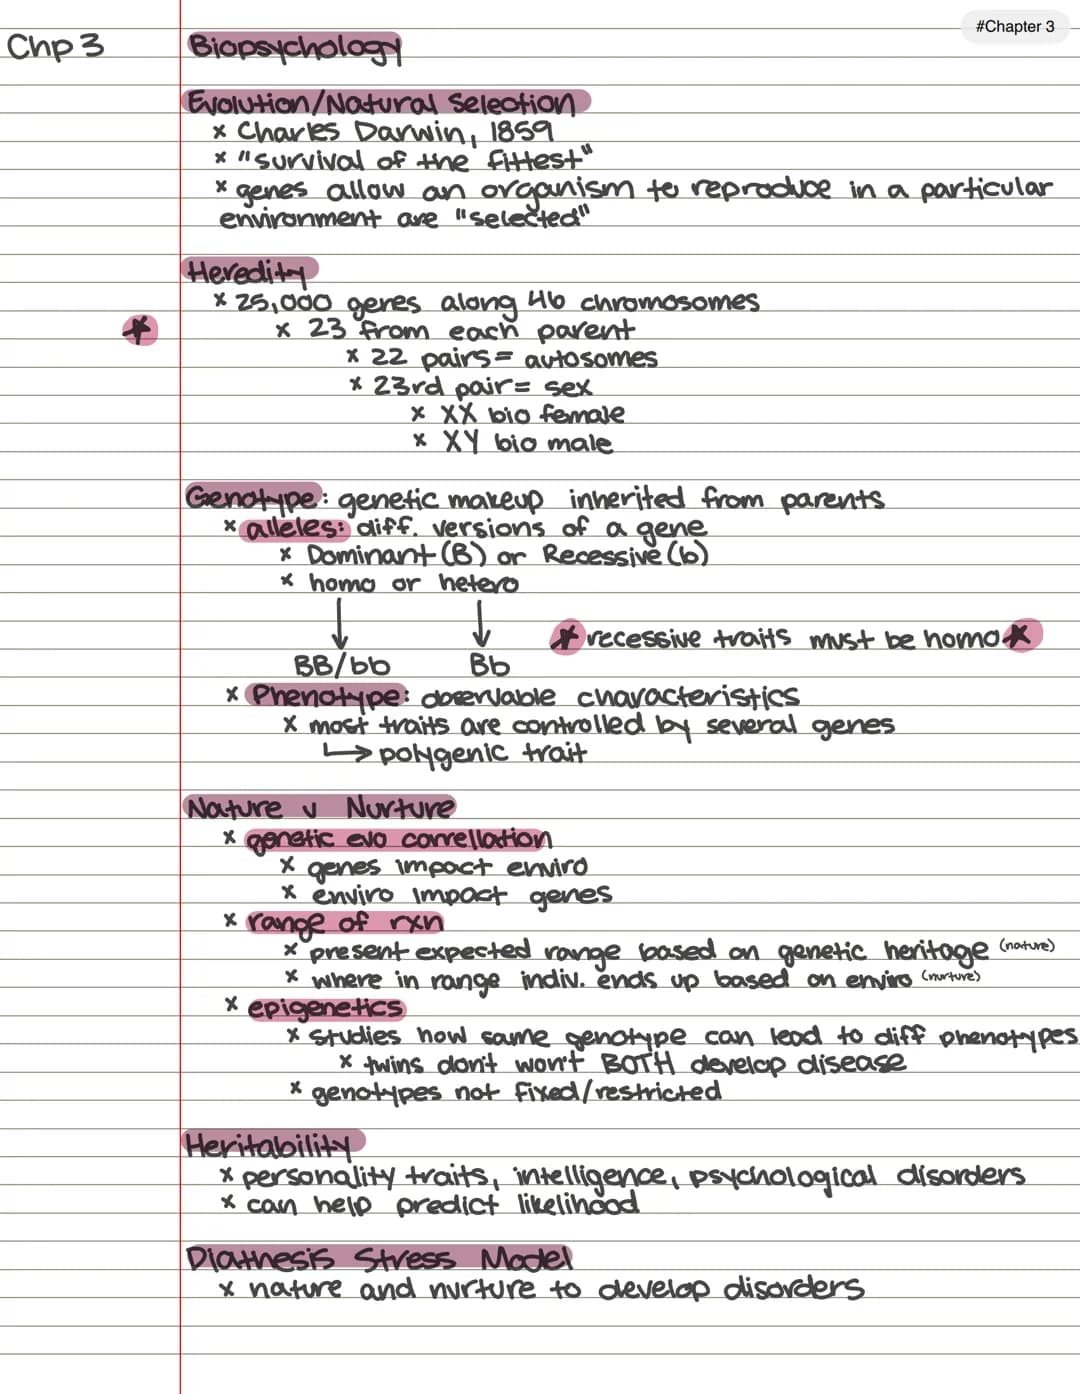 #Chapter 3
Chp 3
Biopsychology
Evolution/Natural Selection
x Charles Darwin, 1859
x "survival of the fittest"
x genes allow an organism to reproduce in a particular
environment are "selected"
Heredity
x 25,000 genes along 46 chromosomes
x 23 from each parent
x 22 pairs = autosomes
x 23rd pair = sex
x XX bio female
x XY bio male
Genotype: genetic makeup inherited from parents
x alleles: diff. versions of a gene
x Dominant (B) or Recessive (b)
x homo or hetero
↓ ↓ ★ recessive traits must be homo ★
BB/bb Bb
x Phenotype: observable characteristics
x most traits are controlled by several genes
↳ polygenic trait
Nature v Nurture
x genetic evo correllation
x genes impact enviro
x enviro impact genes
x range of rxn
x present expected range based on genetic heritage (nature)
x where in range indiv. ends up based on enviro (nurture)
x epigenetics
x studies how same genotype can lead to diff phenotypes
x twins don't won't BOTH develop disease
x genotypes not fixed/restricted
Heritability
x personality traits, intelligence, psychological disorders
x can help predict likelihood
Diathesis Stress Model
x nature and nurture to develop disorders